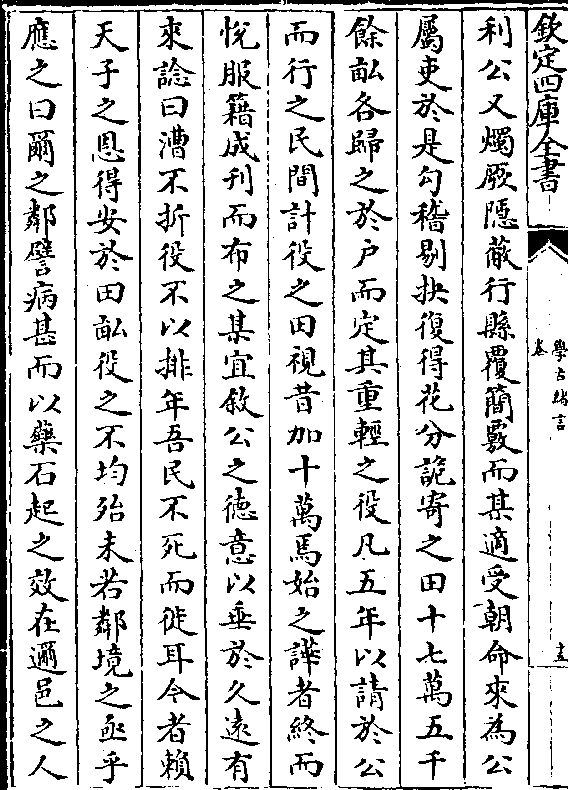 欽定四庫全書
學古緒言
卷
十五
利公又燭厥隱蔽行縣覆簡覈而某適受朝命來為公
屬吏於是勾稽剔抉復得花分詭寄之田十七萬五千
餘畝各歸之於户而定其重輕之役凡五年以請於公
而行之民間計役之田視昔加十萬焉始之譁者終而
悅服籍成刋而布之某宜敘公之徳意以垂於久遠有
來諗曰漕不折役不以排年吾民不死而徙耳今者賴
天子之恩得安於田畝役之不均殆未若鄰境之亟乎
應之曰爾之鄰譬病甚而以藥石起之效在邇邑之人